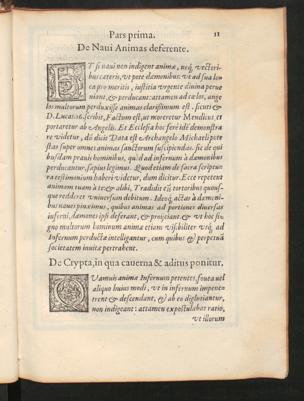 Pars prima. 11
De Naui Animas deferente.
ET si naui non indigent animæ, neq; vectori-
bus cæteris, vt pote dæmonibus: vt ad sua lo-
ca pro meritis, iustitia vrgente diuina perue
niant, & perducant: attamen ad cælos, ange
los multorum perduxisse animas clarissimum est. sicuti &
D. Lucas.16. scribit, Factum est, vt moreretur Mendicus, et
portaretur ab Angelis. Et Ecclesia hoc ferè idē demonstra
re videtur, dū dicit Data est Archangelo Michaeli pote
stas super omnes animas sanctorum suscipiendas. sic de qui
busdam prauis hominibus, quòd ad infernum à dæmonibus
perducantur, sæpius legimus. Quod etiam de sacra scriptu-
ra testimonium haberi videtur, dum dicitur. Ecce repetent
animam tuam à te: & alibi, Tradidit eū tortoribus quous-
que redderet vniuersum debitum. Ideoq; actas à dæmoni-
bus naues piissimus, quibus animas ad portiones diuersas
inferni, dæmones ipsi deferant, & proijciant. & vt hoc si-
gno multorum hominum animæ etiam visibiliter viâ, ad
Infernum perductæ intelligantur, cum quibus & perpetuâ
societatem inuitæ pertrahent.
De Crypta, in qua cauerna & aditus ponitur.
QVamuis animæ Infernum petentes, fouea vel
aliquo huius modi, vt in infernum impene-
trent & descendant, & ab eo deglutiantur,
non indigeant: attamen expostulabat ratio,
vt illorum